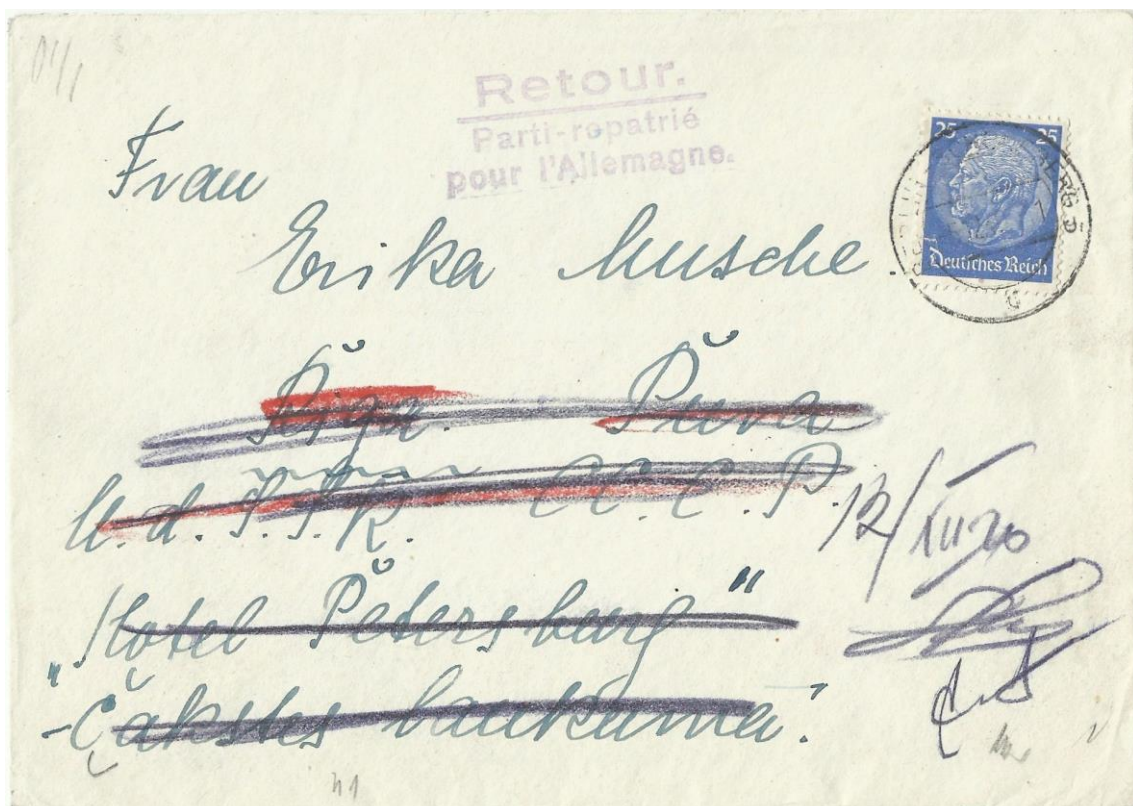 Retour.
Parti-repatrié
pour l'Allemagne.
25 25
Deutsches Reich
Frau
Erika Musche.
Riga. Рига
U.d.S.S.R. C.C.C.P.
"Hotel Petersburg"
-Čakstes laukuma.
12/XII 40